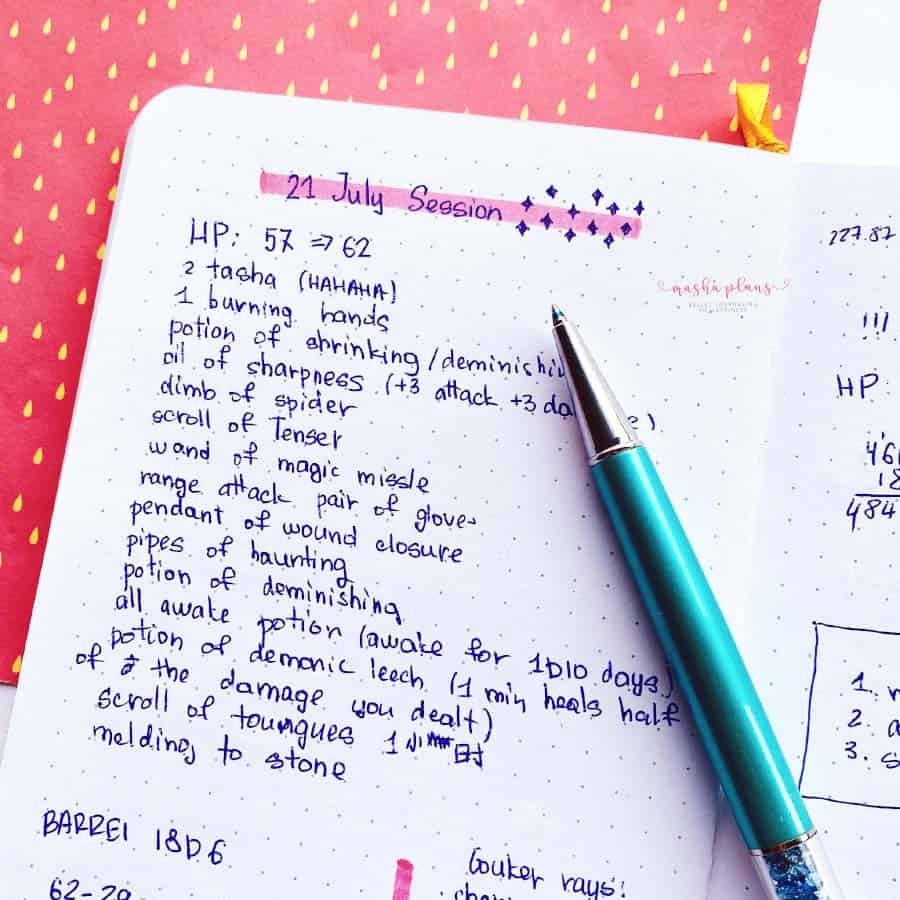 21 July Session
HP: 57 ⇒ 62
2 tasha (HAHAHA)
1 burning hands
potion of shrinking/deminishi
oil of sharpness (+3 attack +3 da e)
climb of spider
scroll of Tenser
wand of magic missle
range attack pair of gloves
pendant of wound closure
pipes of haunting
potion of deminishing
all awake potion (awake for 1D10 days)
potion of demonic leech (1 min heals half
of the damage you dealt)
scroll of toungues 1
melding to stone
BARREl 18D6
62-29
Gouker rays!
masha plans
227.87
!!!
HP:
46
18
484
1.
2. a
3. s